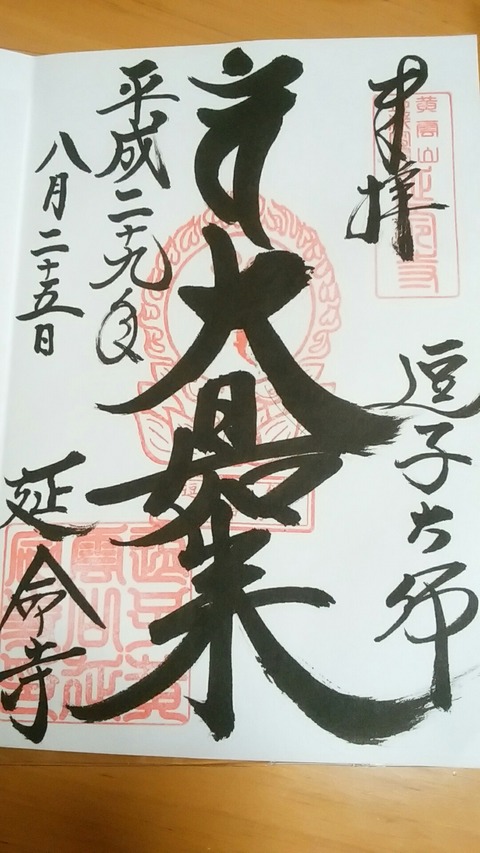 奉拝
逗子大師
大日如来
平成二十九年
八月二十五日
延命寺
黄雲山